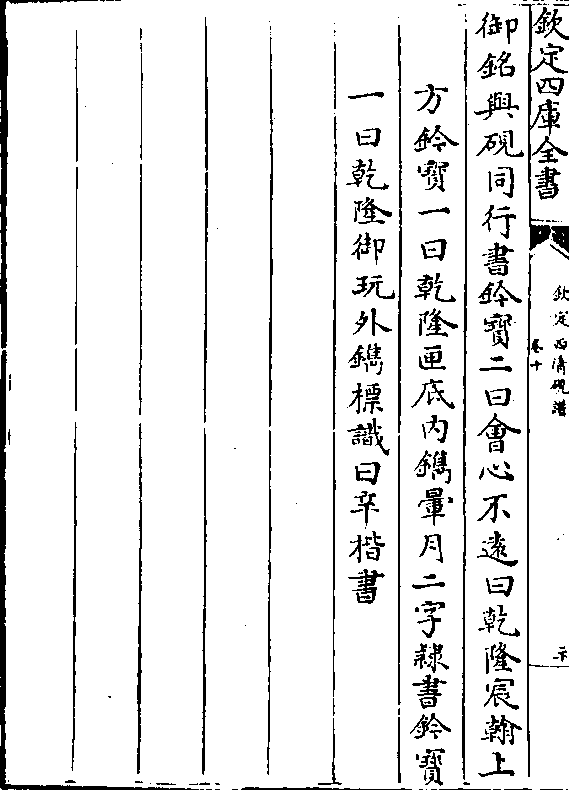 欽定四庫全書
欽定西清硯譜
卷十
御銘與硯同行書鈐寶二曰會心不遠曰乾隆宸翰上
方鈐寶一曰乾隆匣底内鐫暈月二字隸書鈐寶
一曰乾隆御玩外鐫標識曰辛楷書